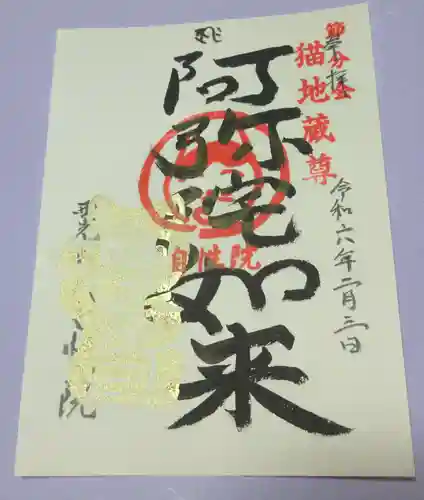 節分会
奉拝
猫地蔵尊
令和六年二月三日
阿弥陀如来
自性院
自性院